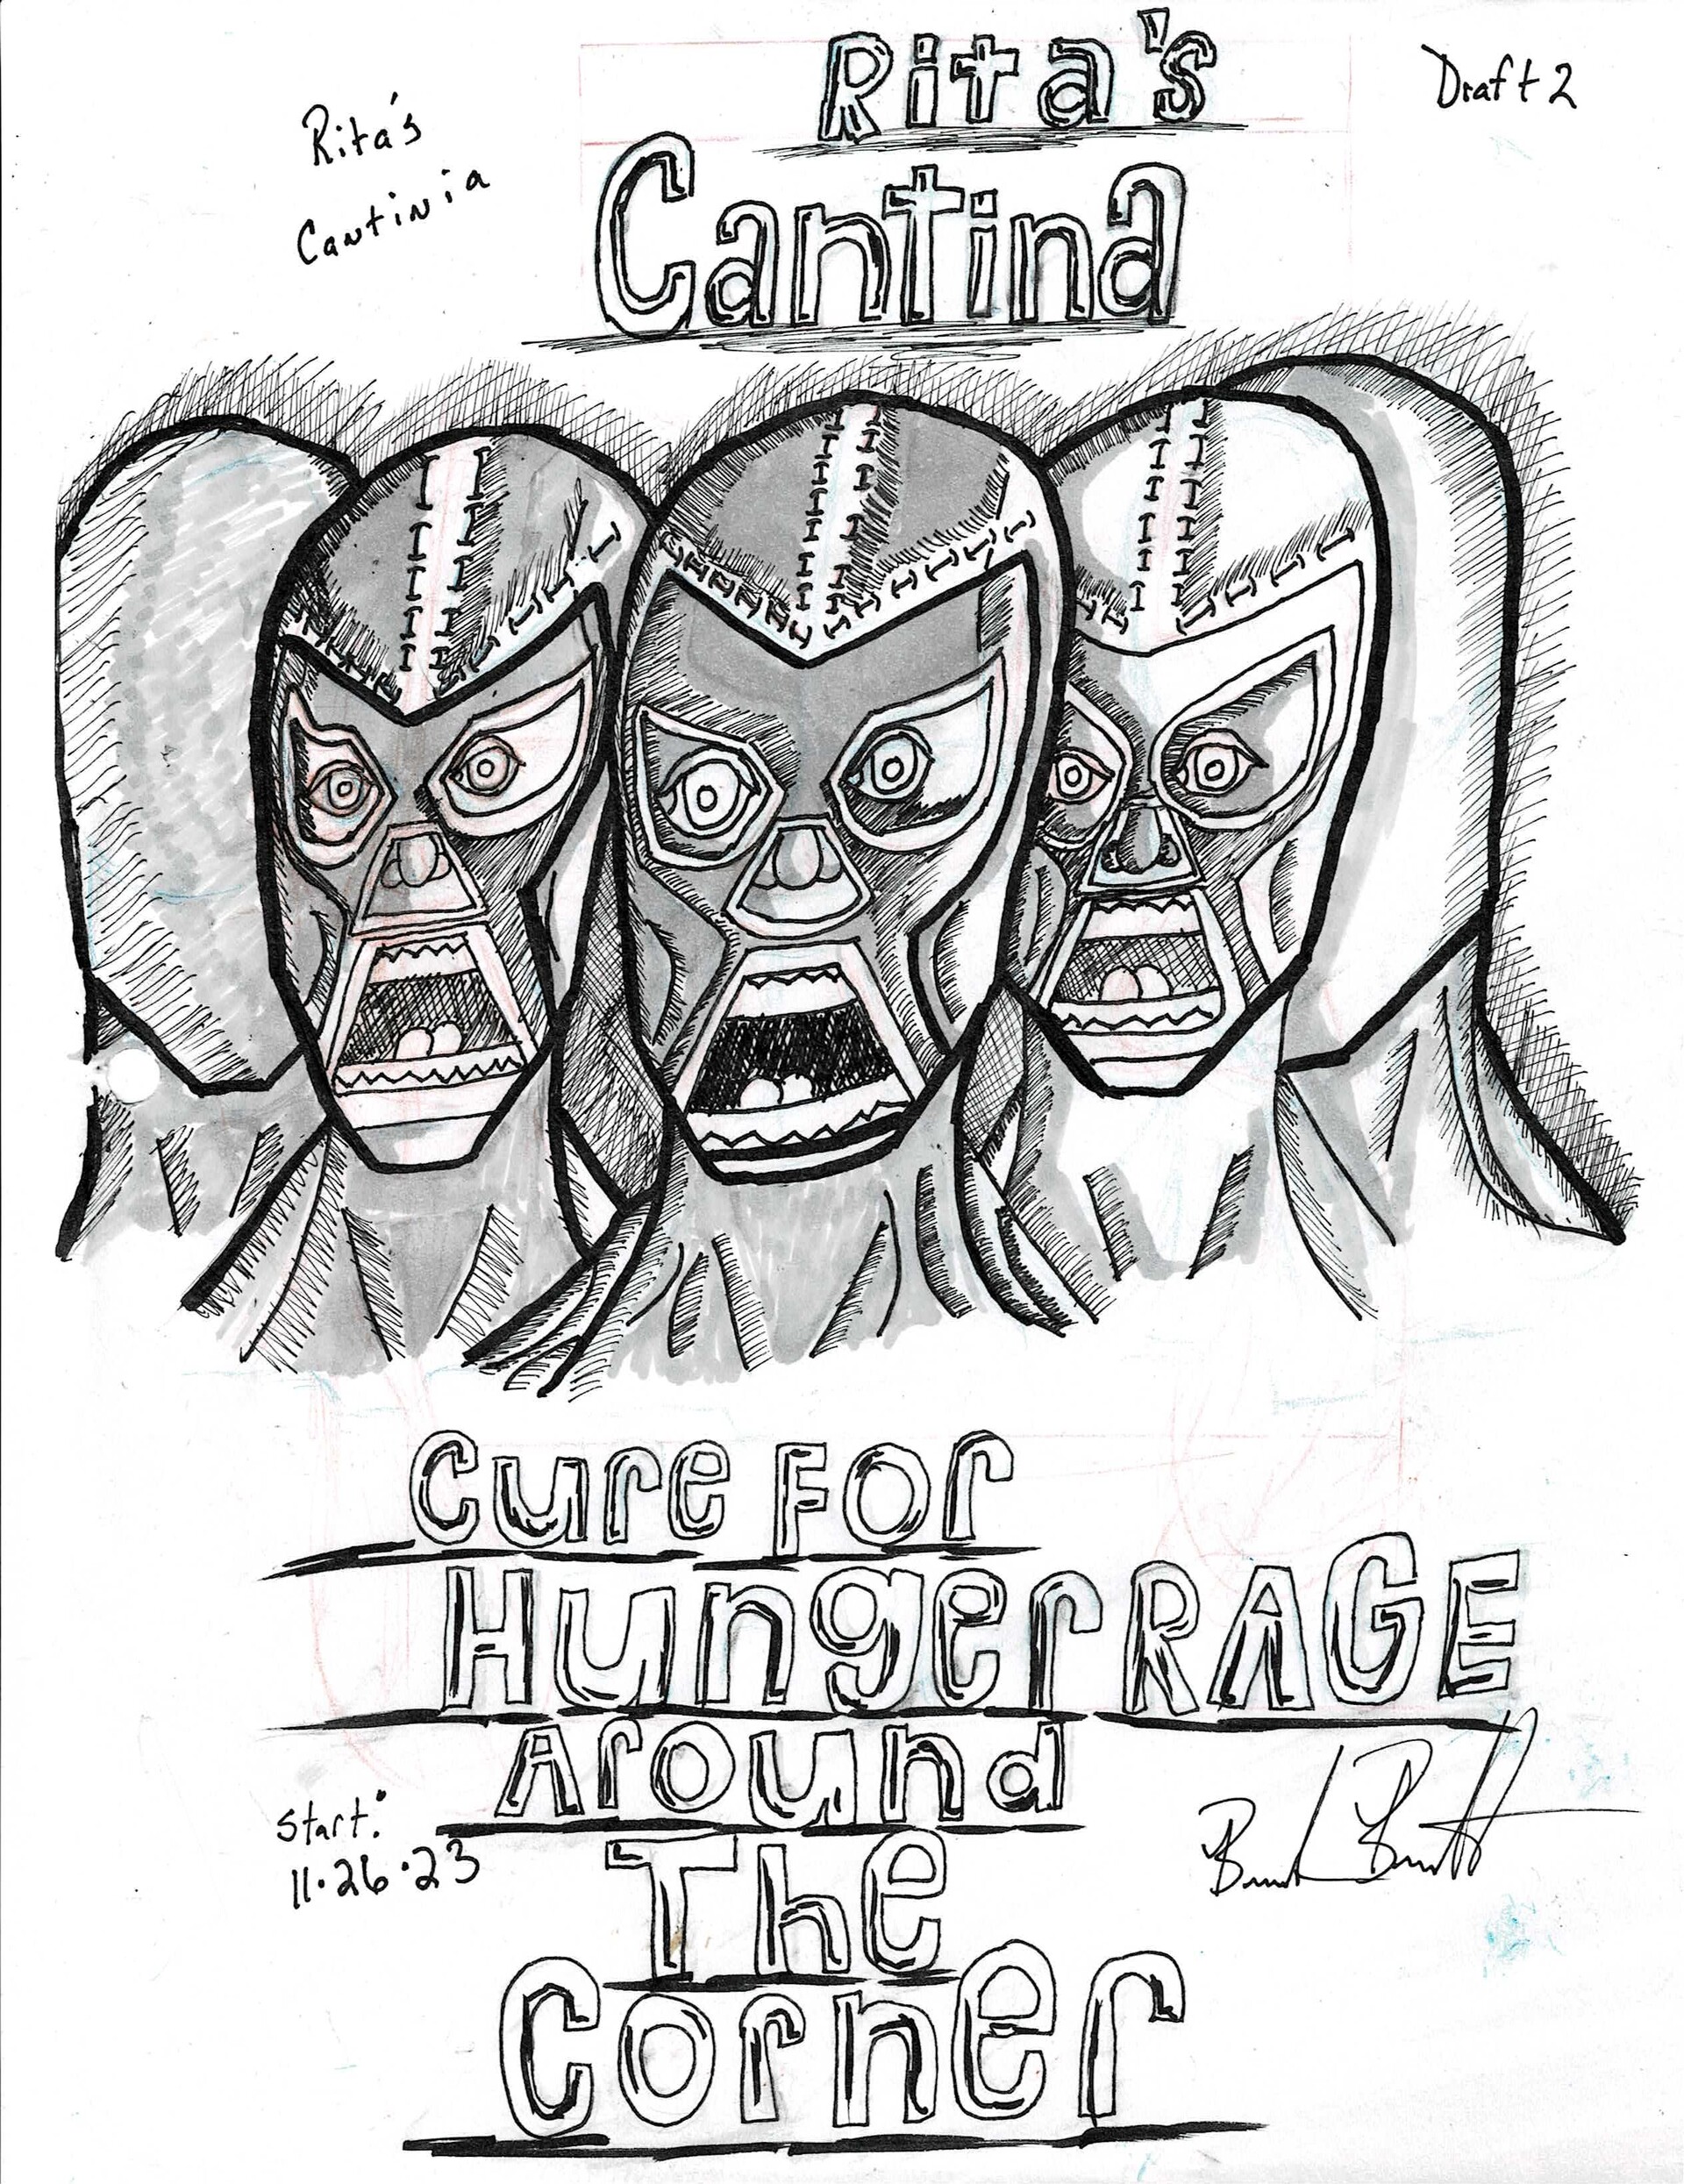 Rita's
Cantina
Draft 2
Rita's
Cantinia
Cure For
Hunger RAGE
Around
The
Corner
Start:
11·26·23